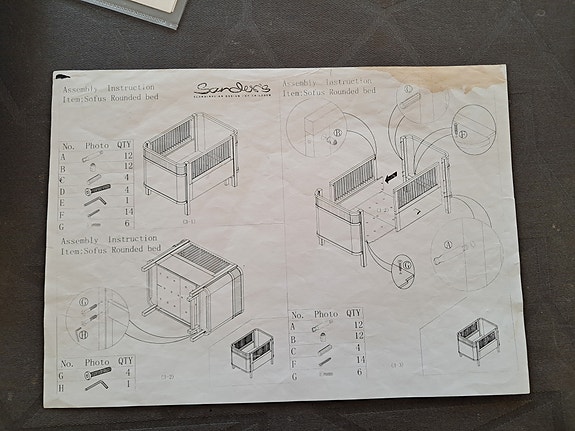 Assembly Instruction
Item:Sofus Rounded bed
Sander's
No. Photo QTY
A 12
B 12
C 4
D 4
E 1
F 14
G 6
(3-1)
Assembly Instruction
Item:Sofus Rounded bed
G
H
No. Photo QTY
G 4
H 1
(3-2)
Assembly Instruction
Item:Sofus Rounded bed
C
B
F
A
G
No. Photo QTY
A 12
B 12
C 4
F 14
G 6